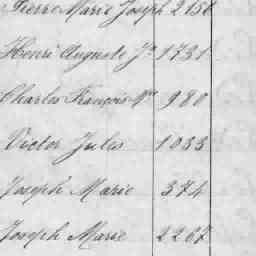 Pierre Marie Joseph 2158
Henri Auguste Jh 1731
Charles François Mie 980
Victor Jules 1033
Joseph Marie 374
Joseph Marie 2267